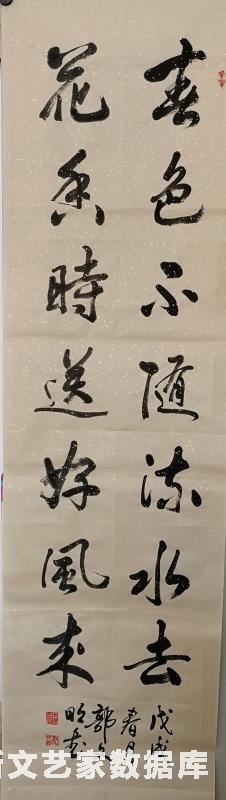 春色不随流水去
花香時送好風来
戊戌
春月
郭
文艺家数据库